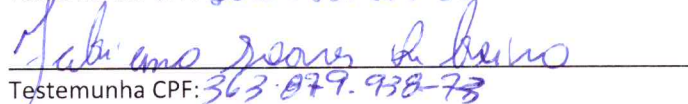 Fabiano Soares de
Testemunha CPF: 363.879.938-78